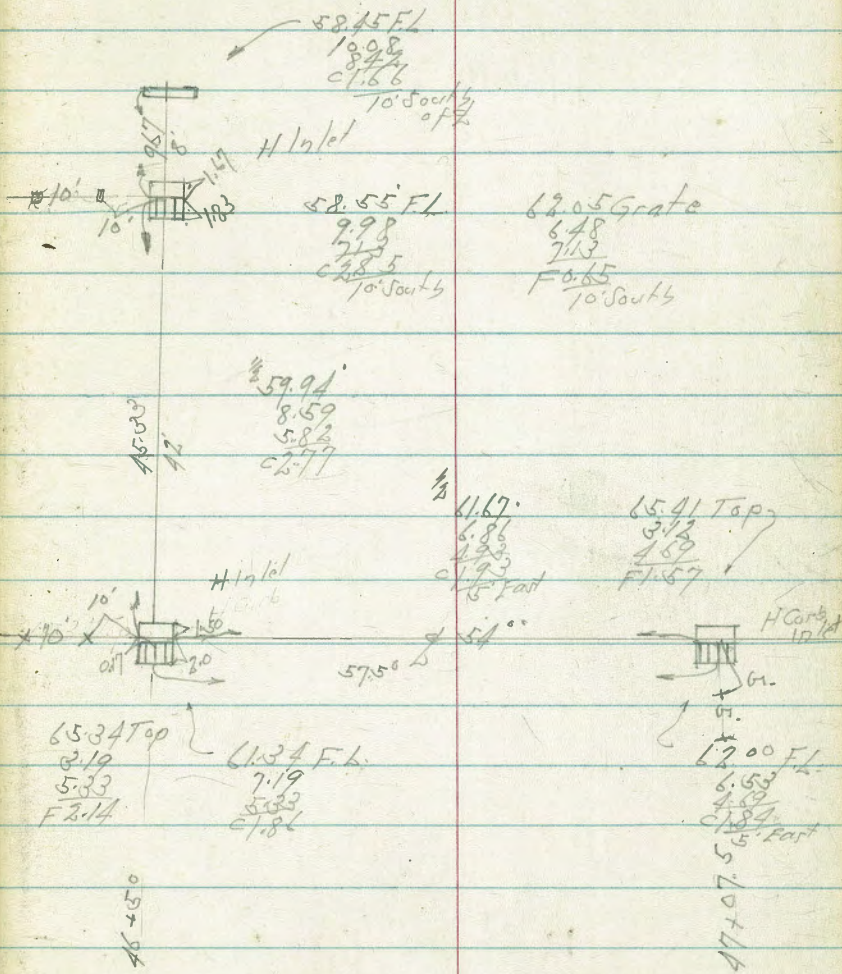 58.45 F.L.
10.08
8.42
C 1.66
10' South
of
H Inlet
8'
1.67
1.83
10'
10'
58.55 F.L.
9.98
7.13
C 2.85
10' South
62.05 Grate
6.48
7.13
F 0.65
10' South
1/2 59.94
8.59
5.82
C 2.77
45.33
42'
1/2 61.67
6.86
4.93
C 1.93
5' East
65.41 Top
3.12
4.69
F 1.57
H Inlet
10'
10'
1.50
2.0
57.5°
54°°
H Curb
Inlet
Gr.
5'
65.34 Top
3.19
5.33
F 2.14
61.34 F.L.
7.19
5.33
C 1.86
62.00 F.L.
6.53
4.69
C 1.84
5' East
46+50
47+07.5